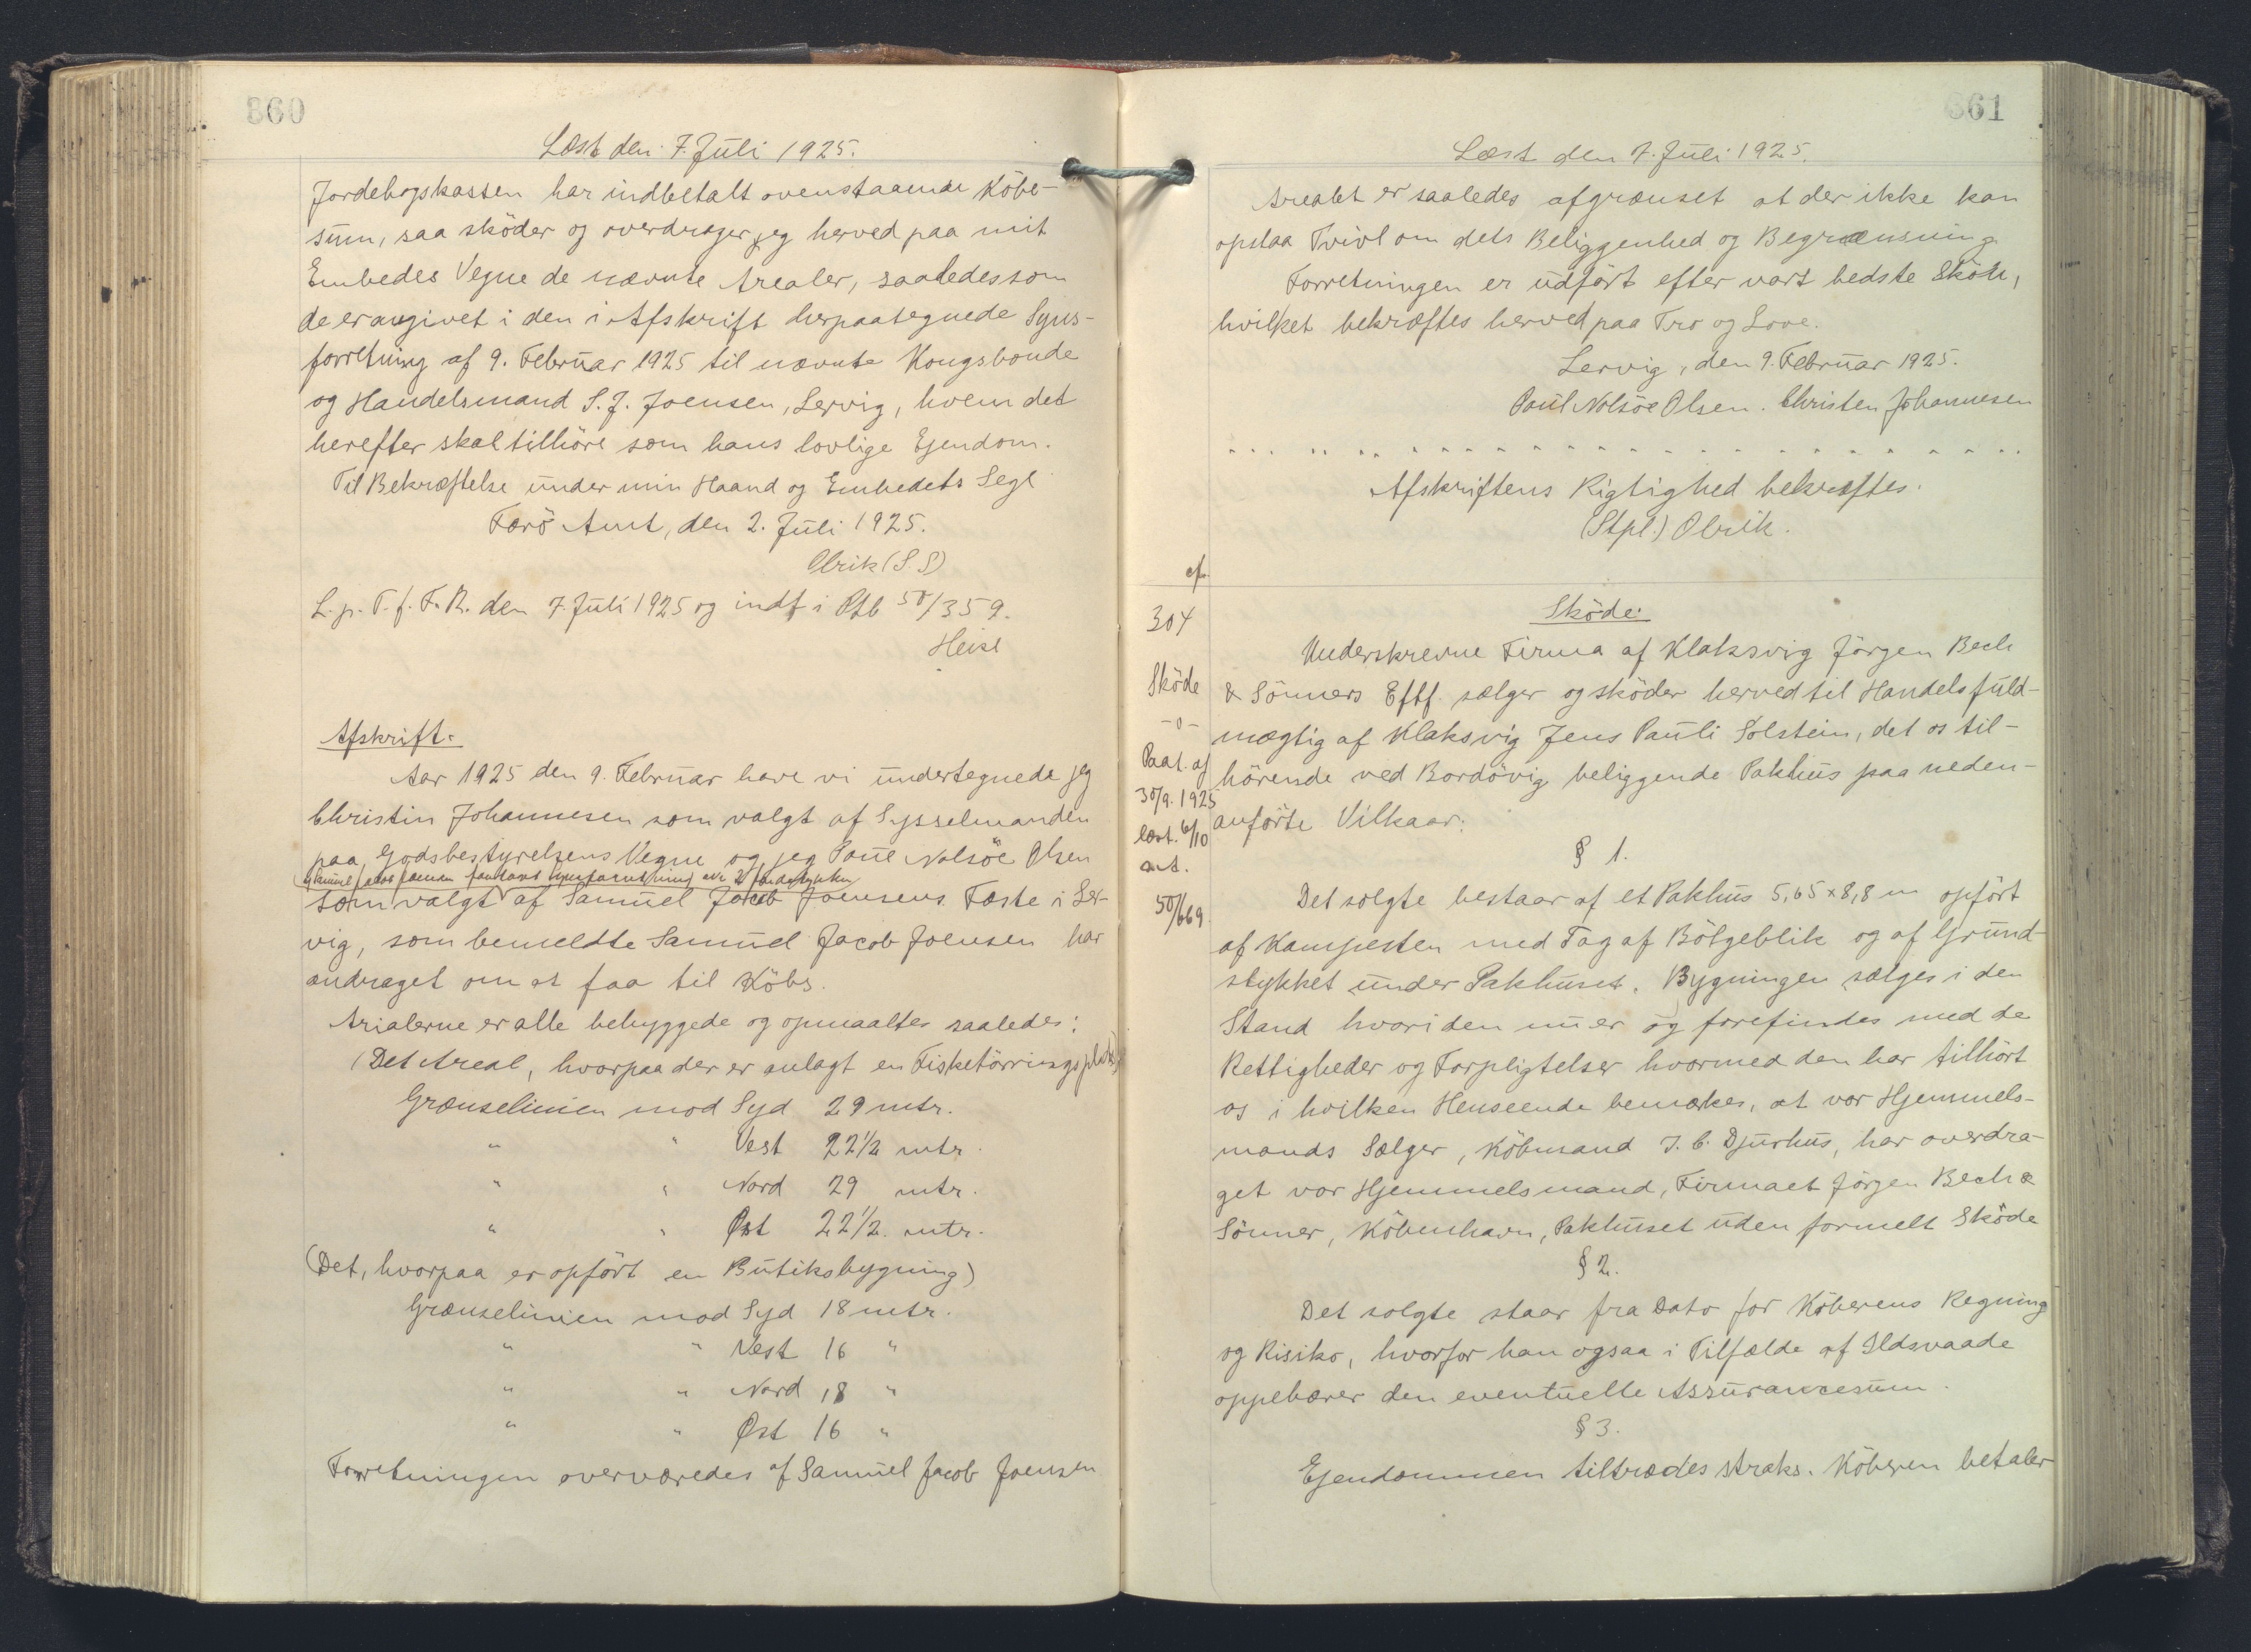 360
Læst den 7. Juli 1925.
Jordebogskassen har indbetalt ovenstaaende Köbe-
sum, saa sköder og overdrager jeg herved paa mit
Embedes Vegne de nævnte Arealer, saaledes som
de er angivet i den i Afskrift herpaategnede Syns-
forretning af 9. Februar 1925 til nævnte Kongsbonde
og Handelsmand S. J. Joensen, Lervig, hvem det
herefter skal tilhöre som hans lovlige Ejendom.
Til Bekræftelse under min Haand og Embedets Segl
Færö Amt, den 2. Juli 1925.
Olrik (S.S)
L. p. T. f. F. R. den 7. Juli 1925 og indf i Ptb 50/359.
Heise
Afskrift.
Aar 1925 den 9. Februar have vi undertegnede jeg
Christin Johannesen som valgt af Sysselmanden
paa Godsbestyrelsens Vegne og jeg Poul Nolsöe Olsen
som valgt af Samuel Jacob Joensens Fæste i Ler-
vig, som bemeldte Samuel Jacob Joensen har
andraget om at faa til Köbs.
Arialerne er alle bebyggede og opmaaltes saaledes:
(Det Areal, hvorpaa der er anlagt en Fisketörringsplads)
Grænselinien mod Syd 29 mtr.
" " Vest 22½ mtr.
" " Nord 29 mtr.
" " Øst 22½ mtr.
(Det, hvorpaa er opfört en Butiksbygning)
Grænselinien mod Syd 18 mtr.
" " Vest 16 "
" " Nord 18 "
" " Øst 16 "
Forretningen overværedes af Samuel Jacob Joensen
661
Læst den 7. Juli 1925.
Arealet er saaledes afgrænset at der ikke kan
opstaa Tvivl om dets Beliggenhed og Begrænsning.
Forretningen er udfört efter vort bedste Skön,
hvilket bekræftes herved paa Tro og Love.
Lervig, den 9. Februar 1925.
Poul Nolsöe Olsen. Christen Johannesen
Afskriftens Rigtighed bekræftes.
(Stpl.) Olrik.
304
Sköde
-o-
Paat. af
30/9. 1925
læst. 6/10
ant.
50/669
Sköde:
Underskrevne Firma af Klaksvig Jörgen Bech
& Sönners Eftf. sælger og sköder herved til Handelsfuld-
mægtig af Klaksvig Jens Pauli Solstein, det os til-
hörende ved Bordövig beliggende Pakhus paa neden-
anförte Vilkaar:
§ 1.
Det solgte bestaar af et Pakhus 5,65 x 8,8 m opfört
af Kampesten med Tag af Bölgeblik og af Grund-
stykket under Pakhuset. Bygningen sælges i den
Stand hvori den nu er og forefindes med de
Rettigheder og Forpligtelser hvormed den har tilhört
os i hvilken Henseende bemærkes, at vor Hjemmels-
mands Sælger, Köbmand J. C. Djurhus, har overdra-
get vor Hjemmelsmand, Firmaet Jörgen Bech &
Sönner, Köbenhavn, Pakhuset uden formelt Sköde
§ 2.
Det solgte staar fra Dato for Köberens Regning
og Risiko, hvorfor han ogsaa i Tilfælde af Ildsvaade
oppebærer den eventuelle Assurancesum.
§ 3.
Ejendommen tiltrædes straks. Köberen betaler